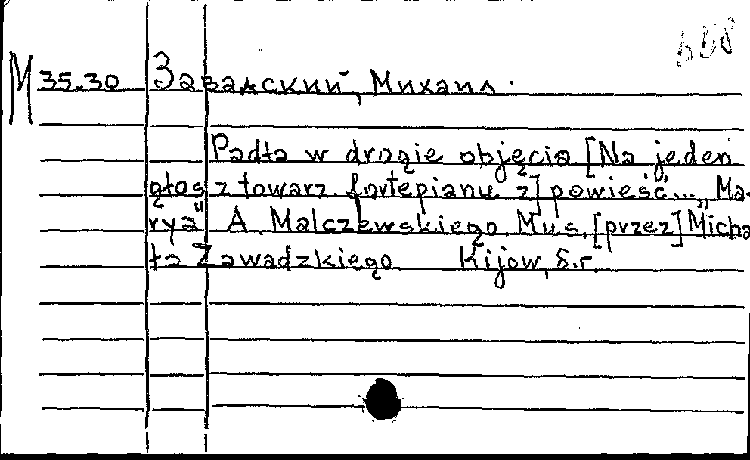 658
М 35.30 Завадский, Михаил.
Padła w drogie objęcia [Na jeden
głos z towarz. fortepianu z] powieść... „Ma-
rya" A. Malczewskiego. Mus. [przez] Micha
ła Zawadzkiego Kijow, s.r.